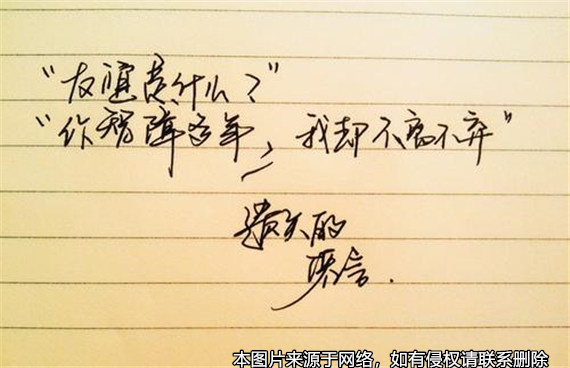 “友谊是什么？”
“你智障多年，我却不离不弃”
遗失的
本图片来源于网络，如有侵权请联系删除